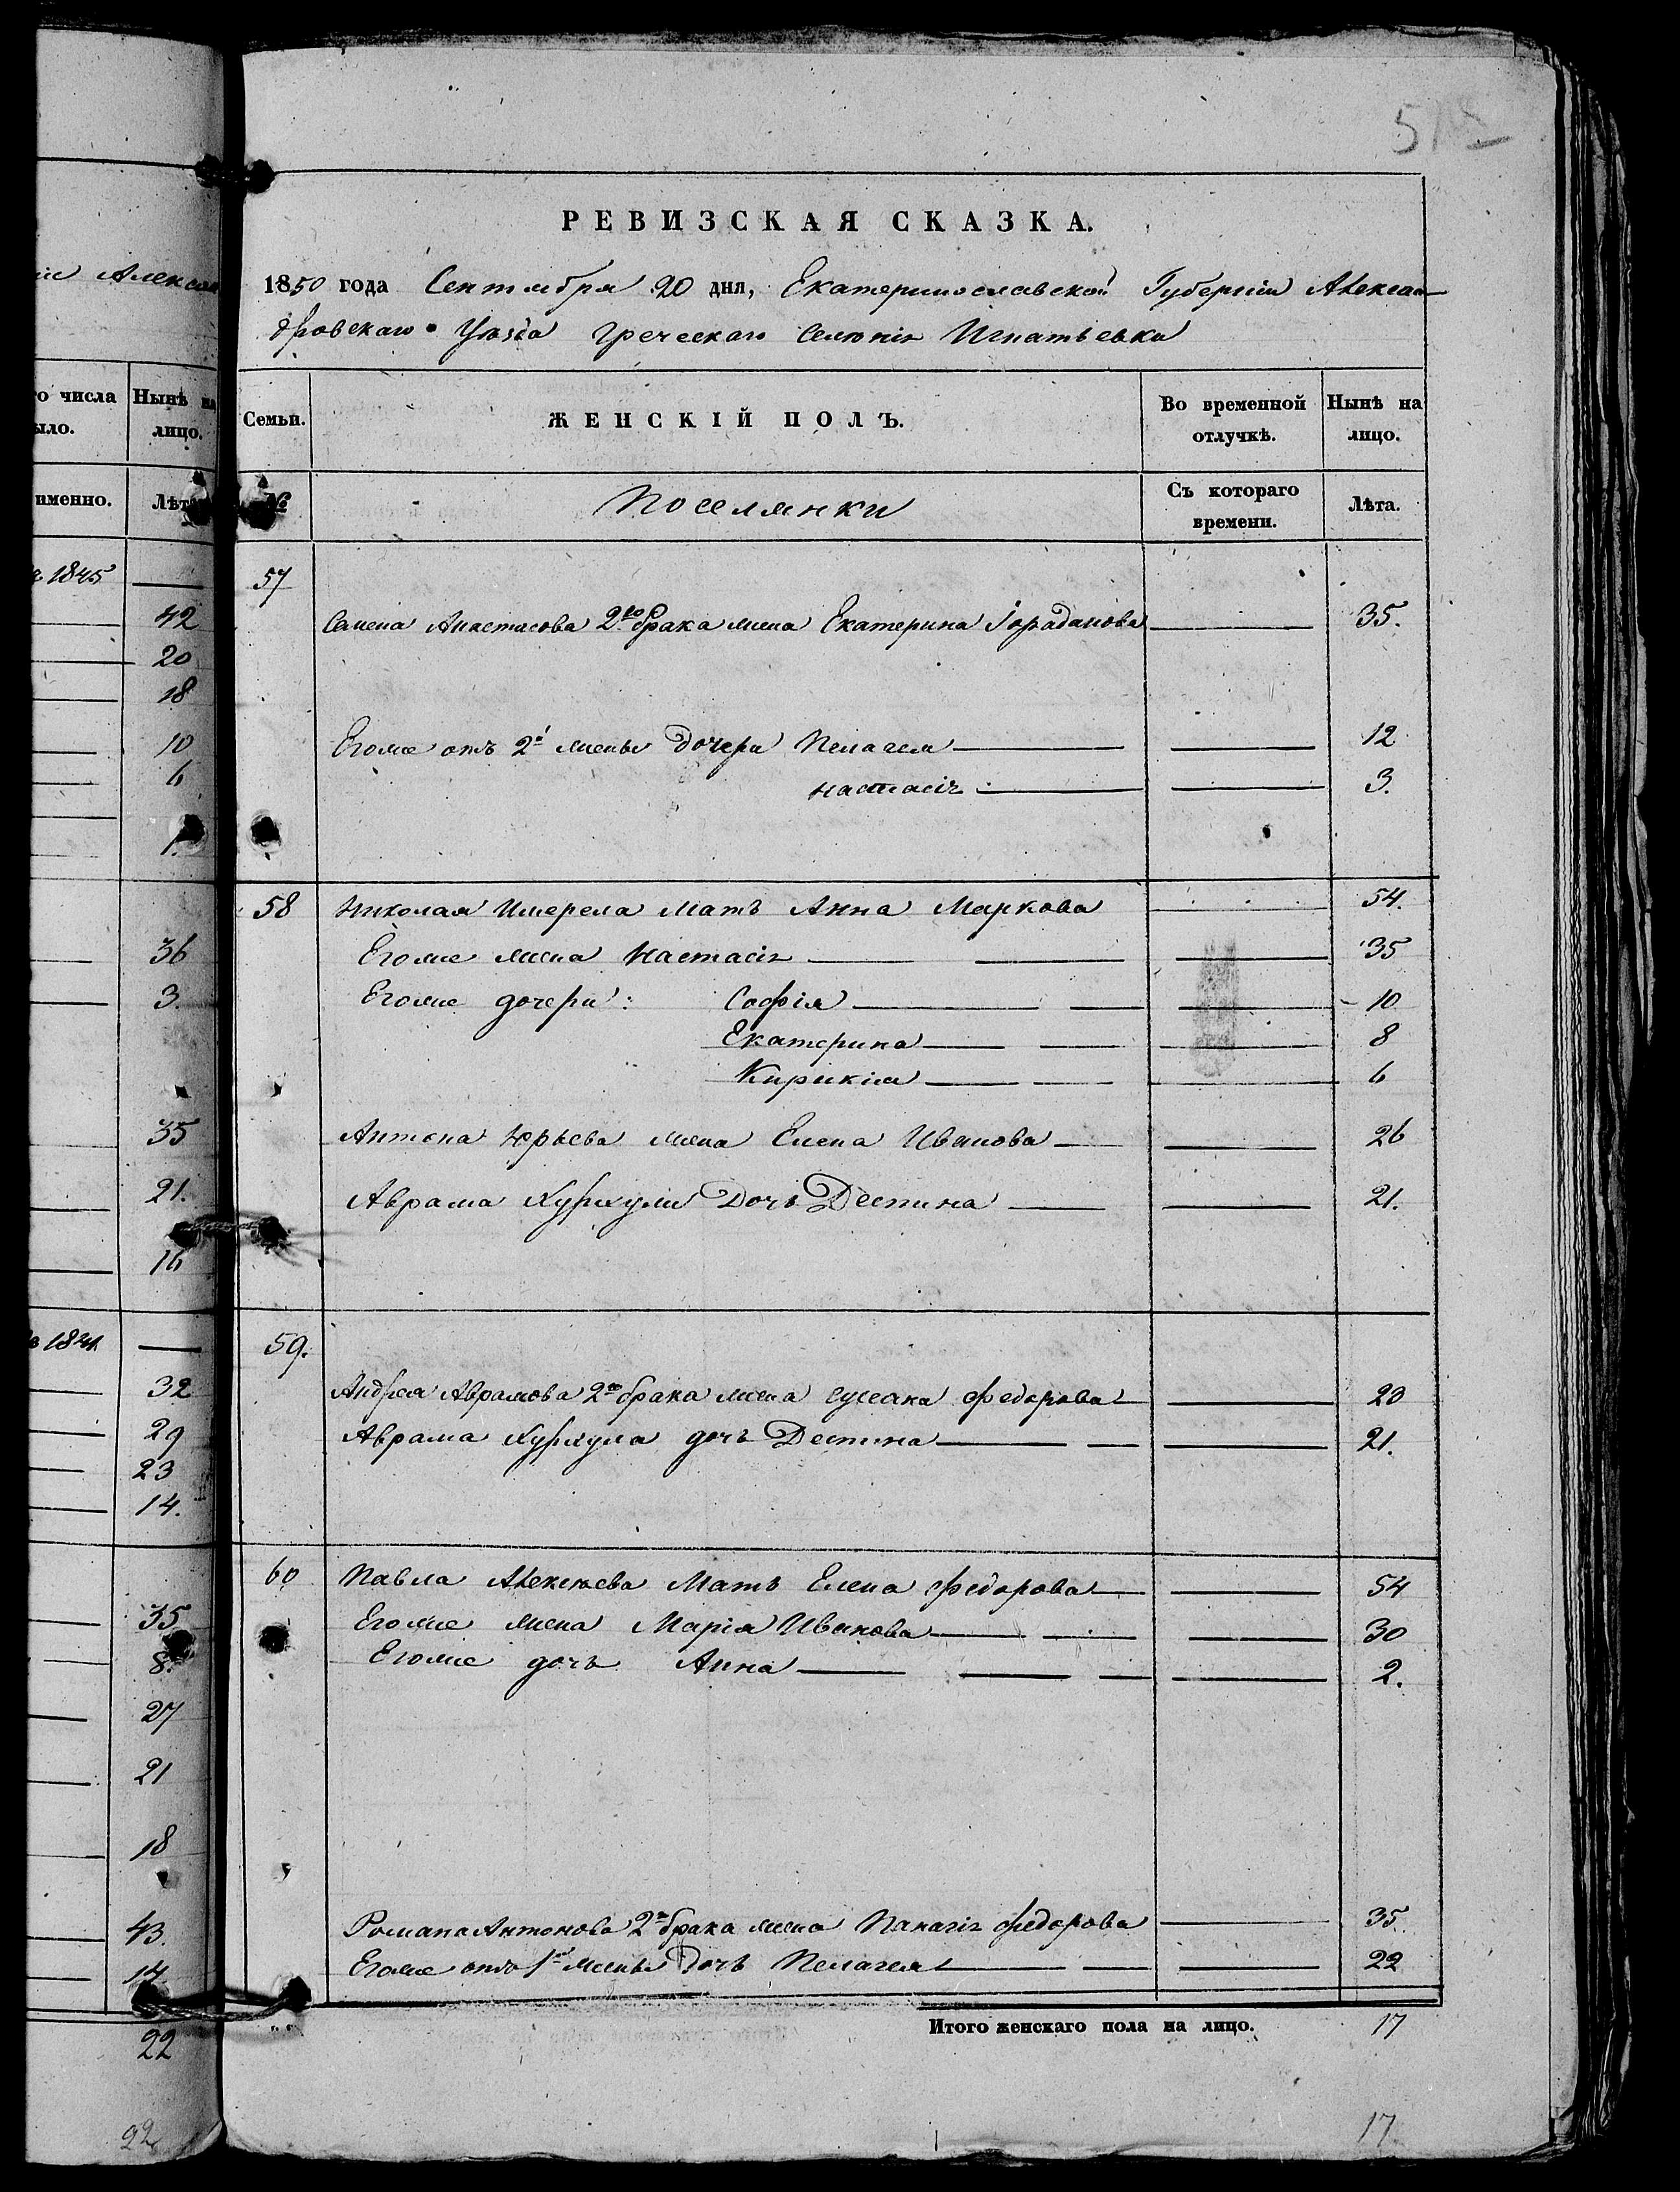 518
іи Алекса
РЕВИЗСКАЯ СКАЗКА.
1850 года Сентября 20 дня, Екатеринославской Губерніи Алексан
дровскаго Уѣзда Греческаго Селенія Игнатьевки
го числа
ыло.
Нынѣ на
лицо.
именно.
Лѣта
Семьи.
ЖЕНСКІЙ ПОЛЪ.
Во временной
отлучкѣ.
Нынѣ на
лицо.
№
Поселянки
Съ котораго
времени.
Лѣта.
1845
42
20
18
10
6
1.
36
3.
35
21.
16
1841
32
29
23
14.
35
8.
27
21
18
43.
14
22
22
57
Семена Анастасова 2го брака жена Екатерина Іорданова 35.
Егоже отъ 2й жены Дочери Пелагея 12
Настасія 3.
58 Николая Имерела Мать Анна Маркова 54.
Егоже жена Настасія 35
Егоже дочери: Софія 10
Екатерина 8
Кирикія 6
Антона Юрьева жена Елена Иванова 26
Аврама Хурхули Дочь Деспина 21.
59.
Андрея Аврамова 2го брака жена Сусана Федорова 20
Аврама Хурхула дочь Деспина 21.
60 Павла Алексѣева Мать Елена Федорова 54
Егоже жена Марія Иванова 30
Егоже дочь Анна 2.
Романа Антонова 2го брака жена Панагія Федорова 35.
Егоже отъ 1й жены Дочь Пелагея 22
Итого женскаго пола на лицо. 17
17